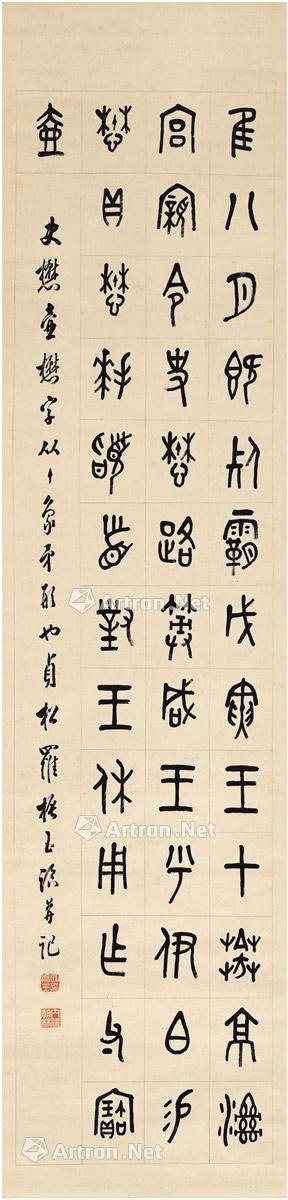 隹八月既死霸戊寅王才𦮘京溼
宮親令史懋路筮咸王乎伊白易
懋貝懋拜𩒨首對王休用乍父丁寶
壺
史懋壺懋字从象矛形也貞松羅振玉臨并記
Artron.Net
Artron.Net
Artron.Net
Artron.Net
Artron.Net
Artron.Net